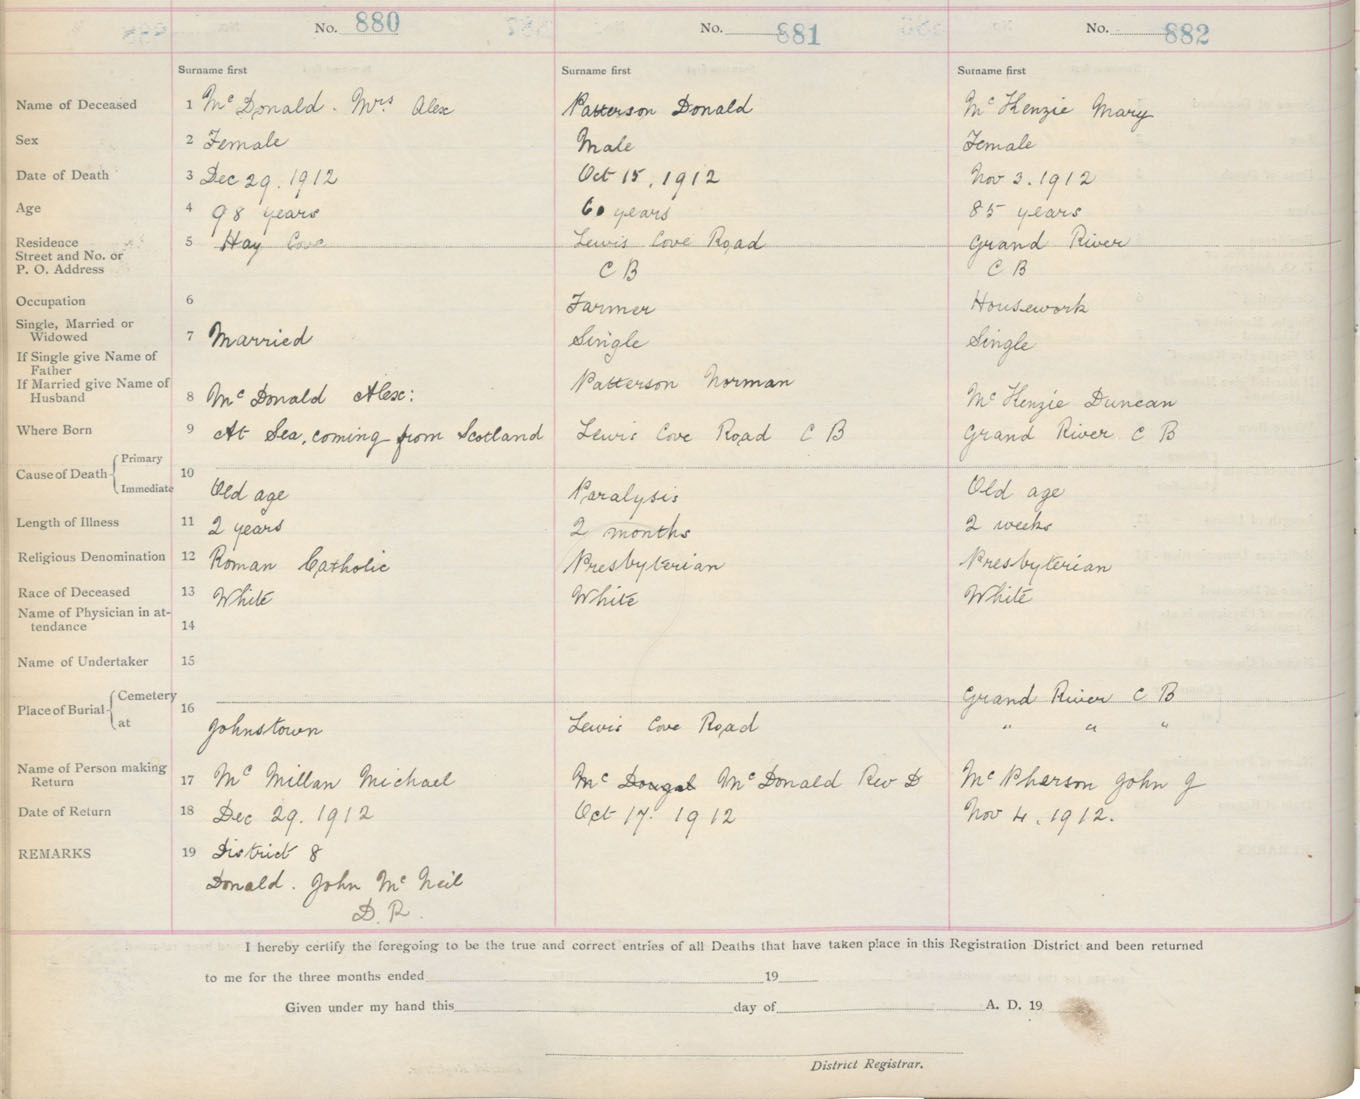 No. 880 No. 881 No. 882
Surname first Surname first Surname first
Name of Deceased 1 McDonald. Mrs Alex Patterson Donald McKenzie Mary
Sex 2 Female Male Female
Date of Death 3 Dec 29. 1912 Oct 15, 1912 Nov 3. 1912
Age 4 98 years 60 years 85 years
Residence 5 Hay Cove Lewis Cove Road Grand River
Street and No. or
P. O. Address C B C B
Occupation 6 Farmer Housework
Single, Married or
Widowed 7 Married Single Single
If Single give Name of
Father
If Married give Name of Patterson Norman
Husband 8 McDonald Alex: McKenzie Duncan
Where Born 9 At Sea, coming from Scotland Lewis Cove Road C B Grand River C B
Cause of Death Primary 10
Immediate Old age Paralysis Old age
Length of Illness 11 2 years 2 months 2 weeks
Religious Denomination 12 Roman Catholic Presbyterian Presbyterian
Race of Deceased 13 White White White
Name of Physician in at-
tendance 14
Name of Undertaker 15
Place of Burial Cemetery 16 Grand River C B
at Johnstown Lewis Cove Road " " "
Name of Person making
Return 17 McMillan Michael Mc Dougal McDonald Rev D McPherson John J
Date of Return 18 Dec 29. 1912 Oct 17. 1912 Nov 4. 1912.
REMARKS 19 District 8
Donald. John McNeil
D. R.
I hereby certify the foregoing to be the true and correct entries of all Deaths that have taken place in this Registration District and been returned
to me for the three months ended 19
Given under my hand this day of A. D. 19
District Registrar.